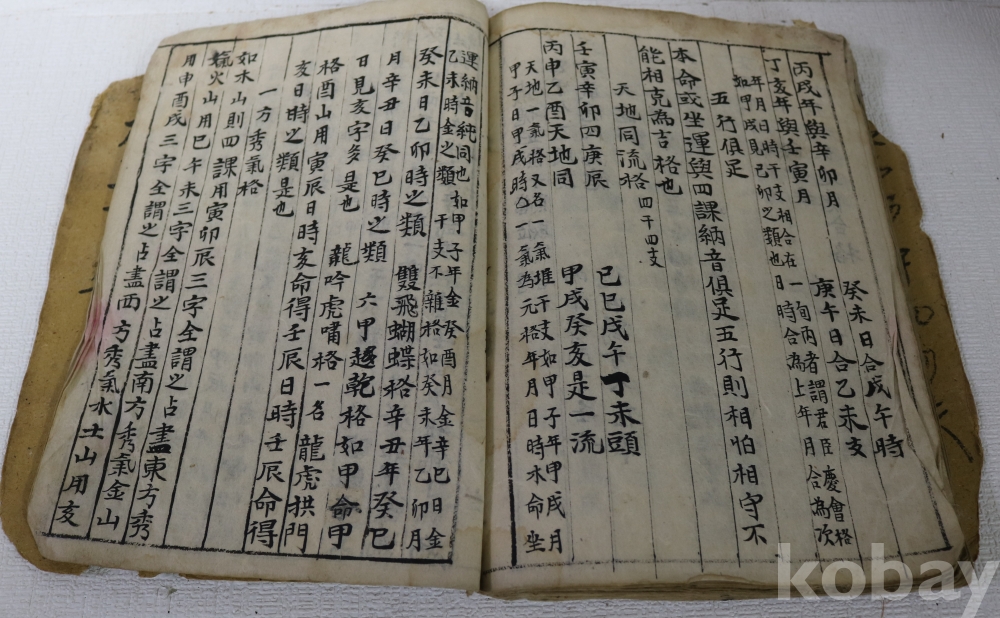 丙戌年與辛卯月 癸未日合戊午時
丁亥年與壬寅月 庚午日合乙未支
年月日時干支相合在一旬兩者謂君臣慶會格
如甲戌見己卯之類也日時合為上年月合為次
五行俱足
本命或坐運與四課納音俱足五行則相怕相守不
能相克為吉格也
天地同流格四干四支
壬寅辛卯四庚辰 己巳戊午丁未頭
丙申乙酉天地同 甲戌癸亥是一流
天地一氣格又名一氣堆干支如甲子年甲戌月
甲子日甲戌時 一氣為元格年月日時木命坐
運納音純同也如甲子年金癸酉月金辛巳日金
乙未時金之類 干支不雜格如癸未年乙卯月
癸未日乙卯時之類 雙飛蝴蝶格辛丑年癸巳
月辛丑日癸巳時之類 六甲趨乾格如甲命甲
日見亥字多是也 龍吟虎嘯格一名龍虎拱門
格酉山用寅辰日時亥命得壬辰日時壬辰命得
亥日時之類是也
一方秀氣格
如木山則四課用寅卯辰三字全謂之占盡東方秀
氣火山用巳午未三字全謂之占盡南方秀氣金山
用申酉戌三字全謂之占盡西方秀氣水土山用亥
kobay